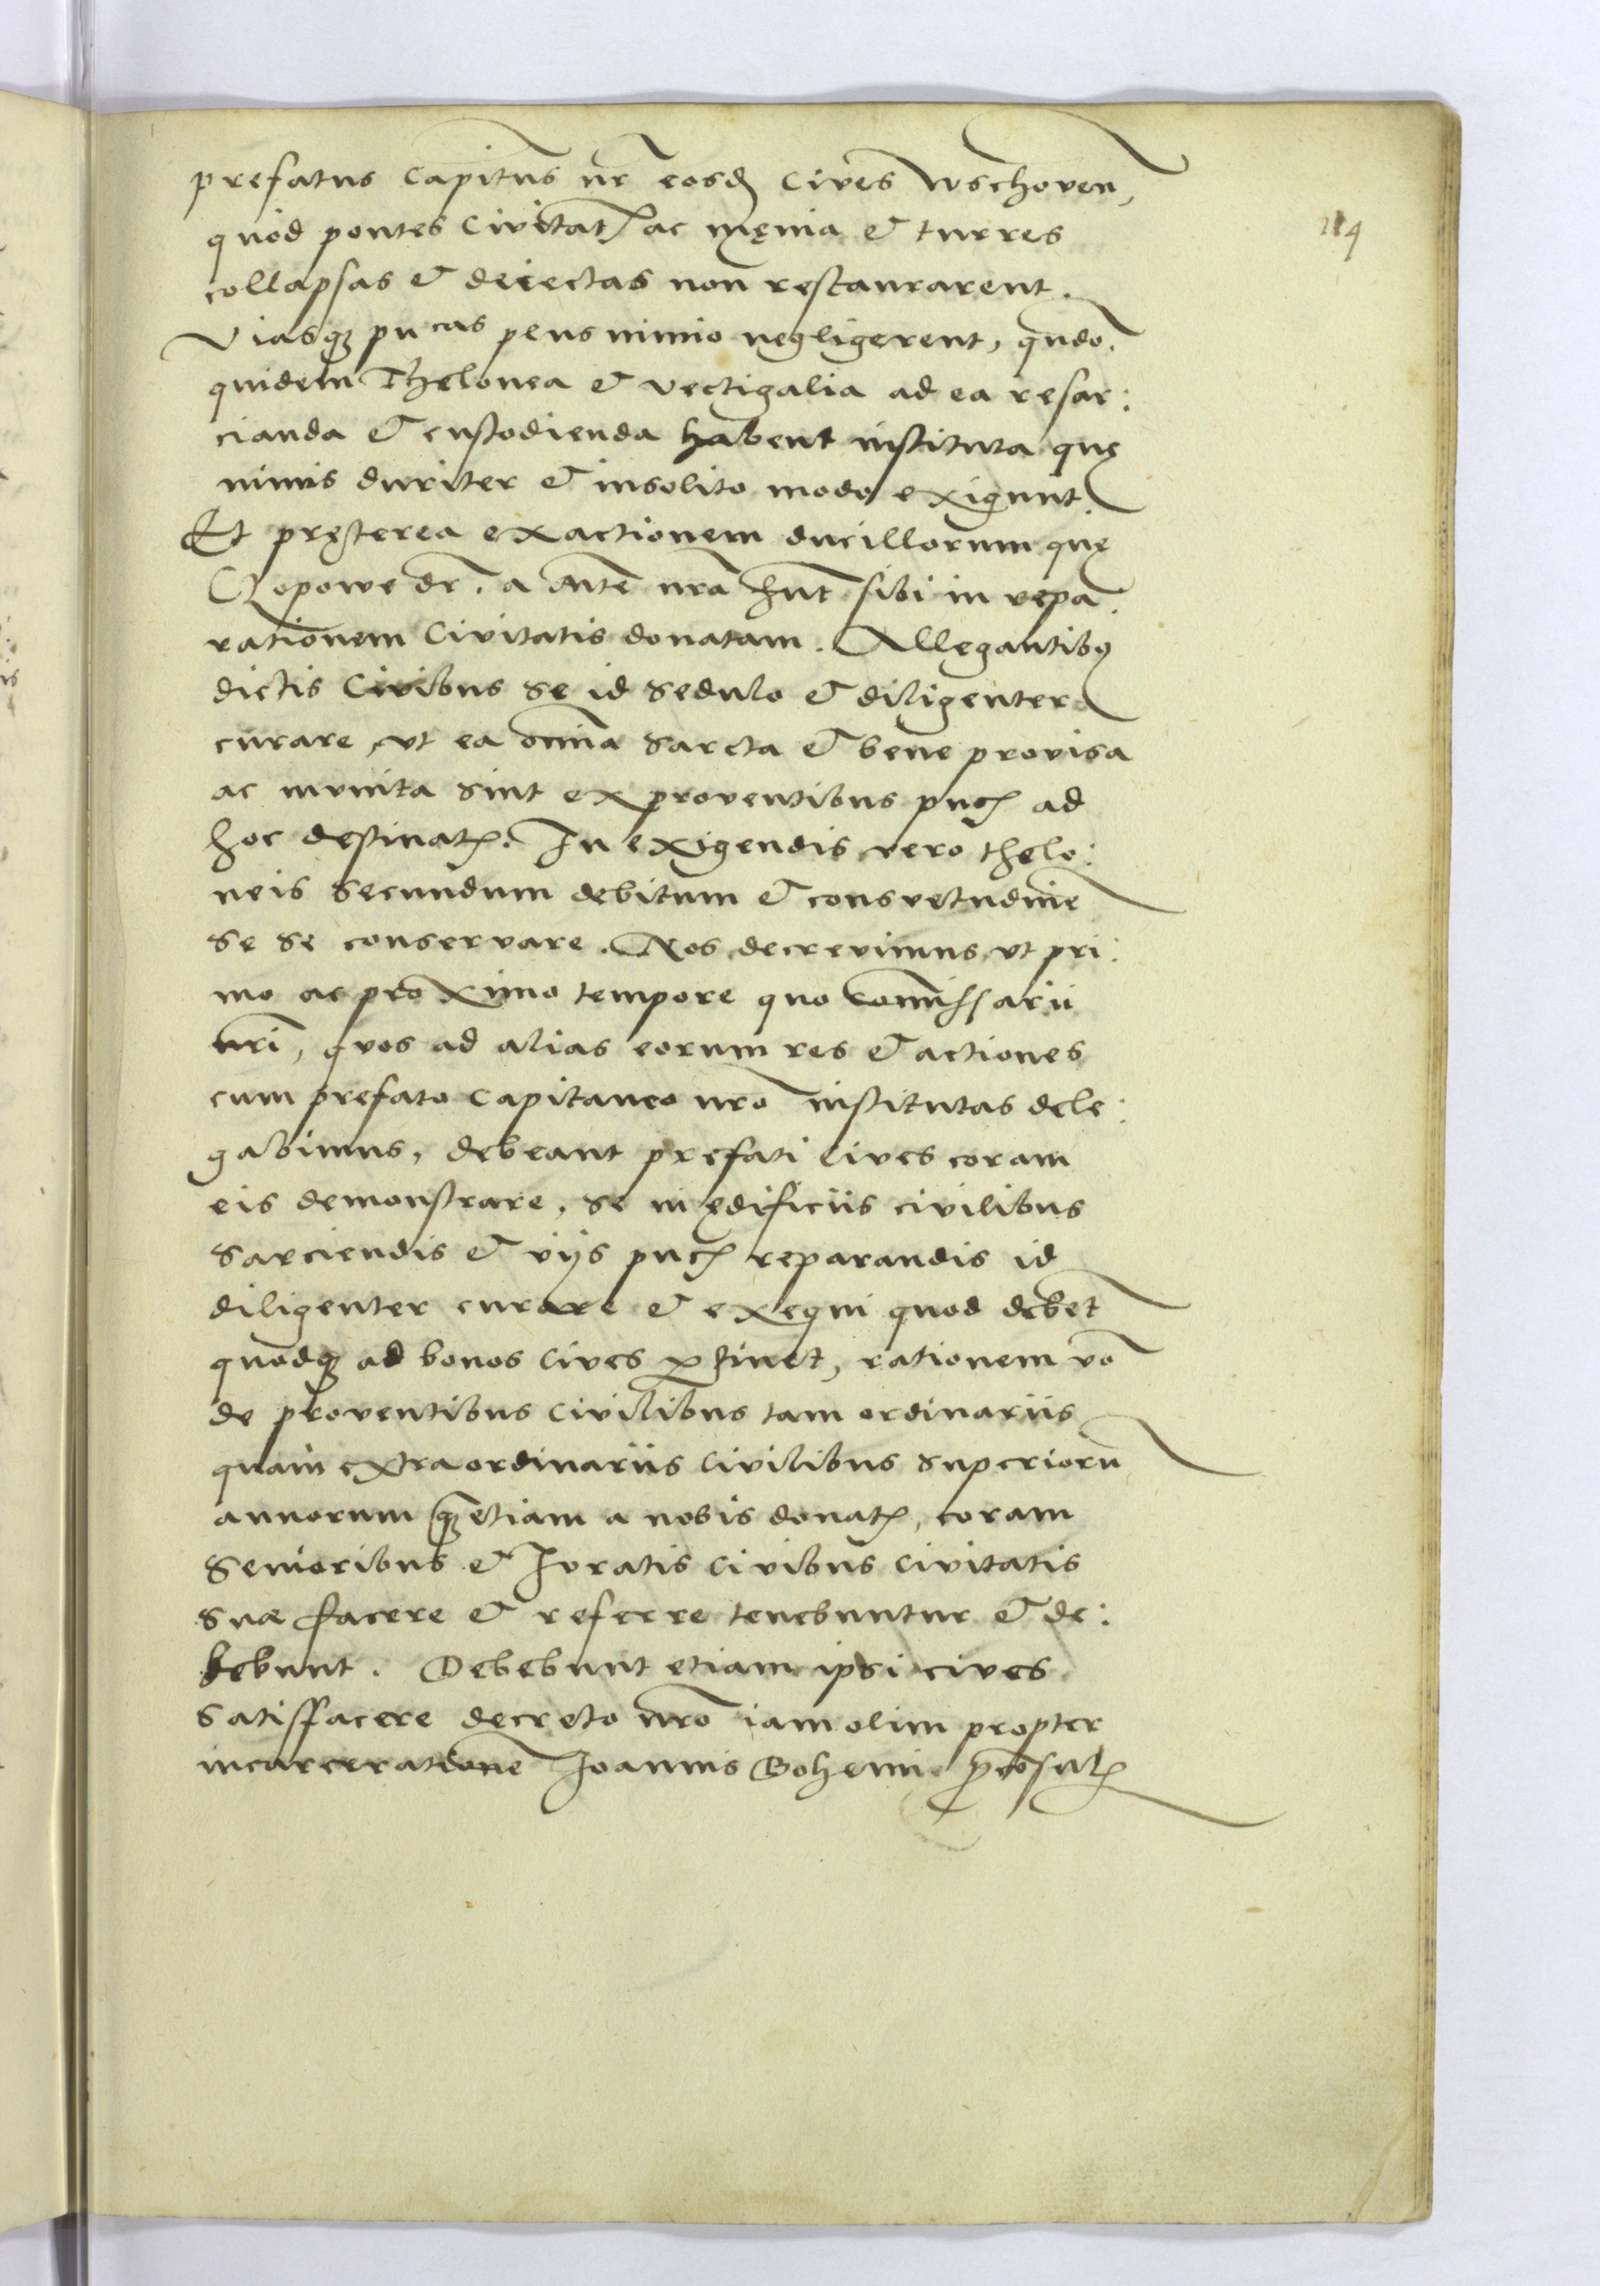 prefatus Capitns nr eosd Cives Wschoven,
quod pontes Civitat ac męnia & turres
collapsas & deiectas non restaurarent.
Viasq pucas plus nimio negligerent, qndo
quidem Thelonea & vectigalia ad ea resar:
cianda & custodienda habent instituta quę
nimis duriter & insolito modo exigunt.
Et pręterea exactionem ducillorum quę
Czopowe dr. a Mte nra hnt sibi in repa:
rationem Civitatis donatam. Allegantibq
dictis Civibus se id sedulo & diligenter
curare, ut ea omnia sarcta & bene provisa
ac munita sint ex proventibus puc ad
hoc destinat. In exigendis vero thelo:
neis secundum debitum & consvetudine
se se conservare. Nos decrevimus, ut pri:
mo ac proximo tempore quo Commissarii
nri, quos ad alias eorum res & actiones
cum prefato Capitaneo nro institutas dele:
gabimus, debeant prefati Cives coram
eis demonstrare, se in ędificiis civilibus
sarciendis & vijs puc reparandis id
diligenter curare & exequi quod debet
quodq ad bonos Cives ptinet, rationem vo
de proventibus Civilibus tam ordinariis
quam extraordinariis Civilibus superioru
annorum q etiam a nobis donat, coram
Senioribus & Iuratis Civibus Civitatis
suæ facere & referre tenebuntur & de:
bebunt. Debebunt etiam ipsi cives
satisfacere decreto nro iam olim propter
incarceratione Joannis Bohemi pconsul